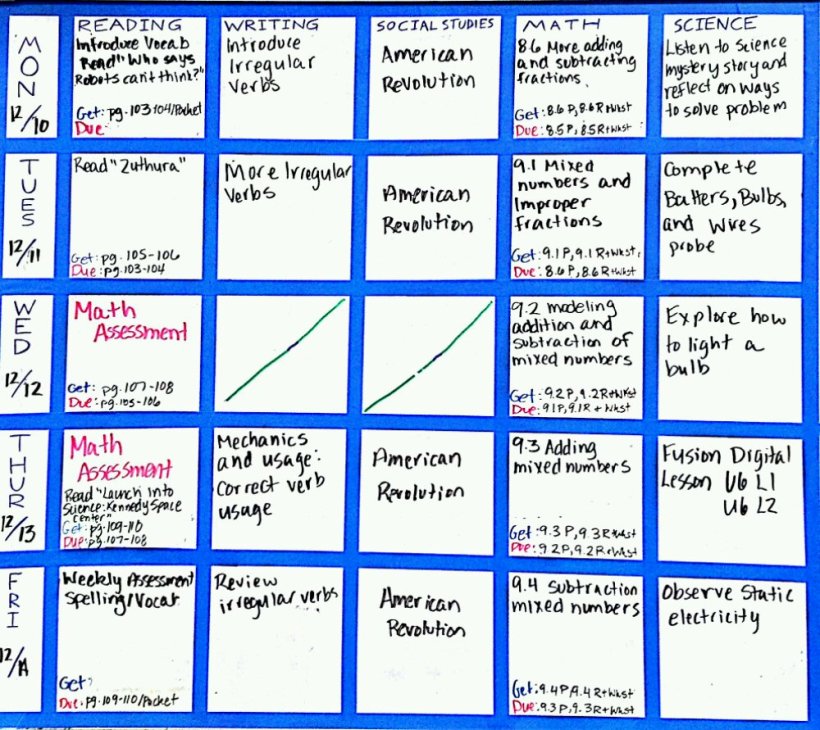 READING
WRITING
SOCIAL STUDIES
MATH
SCIENCE
MON
12/10
Introduce Vocab
Read "Who says
Robots can't think?"
Get: pg. 103-104/Pocket
Due:
Introduce
Irregular
Verbs
American
Revolution
8.6 More adding
and subtracting
fractions.
Get: 8.6 P, 8.6 R+Wkst
Due: 8.5 P, 8.5 R+Wkst
Listen to Science
mystery story and
reflect on ways
to solve problem
TUES
12/11
Read "Zuthura"
Get: pg. 105-106
Due: pg. 103-104
More Irregular
Verbs
American
Revolution
9.1 Mixed
numbers and
Improper
fractions
Get: 9.1 P, 9.1 R+Wkst.
Due: 8.6 P, 8.6 R+Wkst
Complete
Batters, Bulbs,
and Wires
probe
WED
12/12
Math
Assessment
Get: pg. 107-108
Due: pg. 105-106
9.2 modeling
addition and
subtraction of
mixed numbers
Get: 9.2 P, 9.2 R+Wkst
Due: 9.1 P, 9.1 R + Wkst
Explore how
to light a
bulb
THUR
12/13
Math
Assessment
Read "Launch Into
Science: Kennedy Space
Center"
Get: pg. 109-110
Due: pg. 107-108
Mechanics
and usage:
correct verb
usage
American
Revolution
9.3 Adding
mixed numbers
Get: 9.3 P, 9.3 R+Wkst
Due: 9.2 P, 9.2 R+Wkst
Fusion Digital
Lesson U6 L1
U6 L2
FRI
12/14
Weekly Assessment
Spelling/Vocab
Get:
Due: pg. 109-110/Pocket
Review
irregular verbs
American
Revolution
9.4 Subtraction
mixed numbers
Get: 9.4 P, 9.4 R+Wkst
Due: 9.3 P, 9.3 R+Wkst
Observe Static
electricity